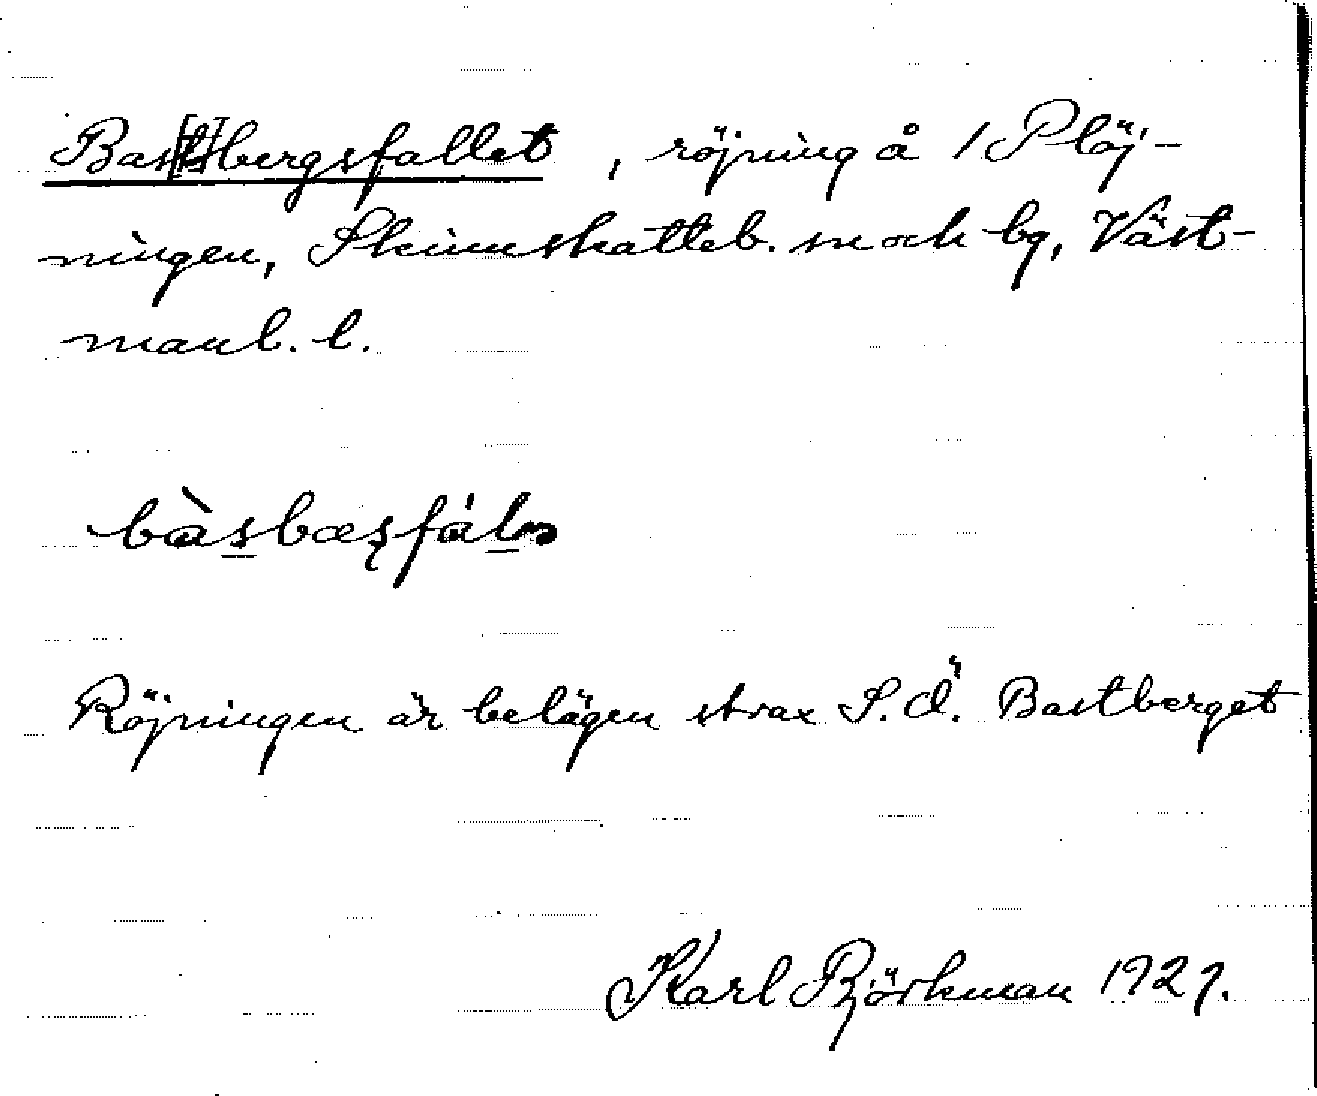 Bas[t]bergsfallet, röjning å 1 Plöj-
ningen, Skinnskatteb. sn och bg, Väst-
manl. l.
bàsbæșfálǝ
Röjningen är belägen strax S.Ö. Bastberget
Karl Björkman 1927.